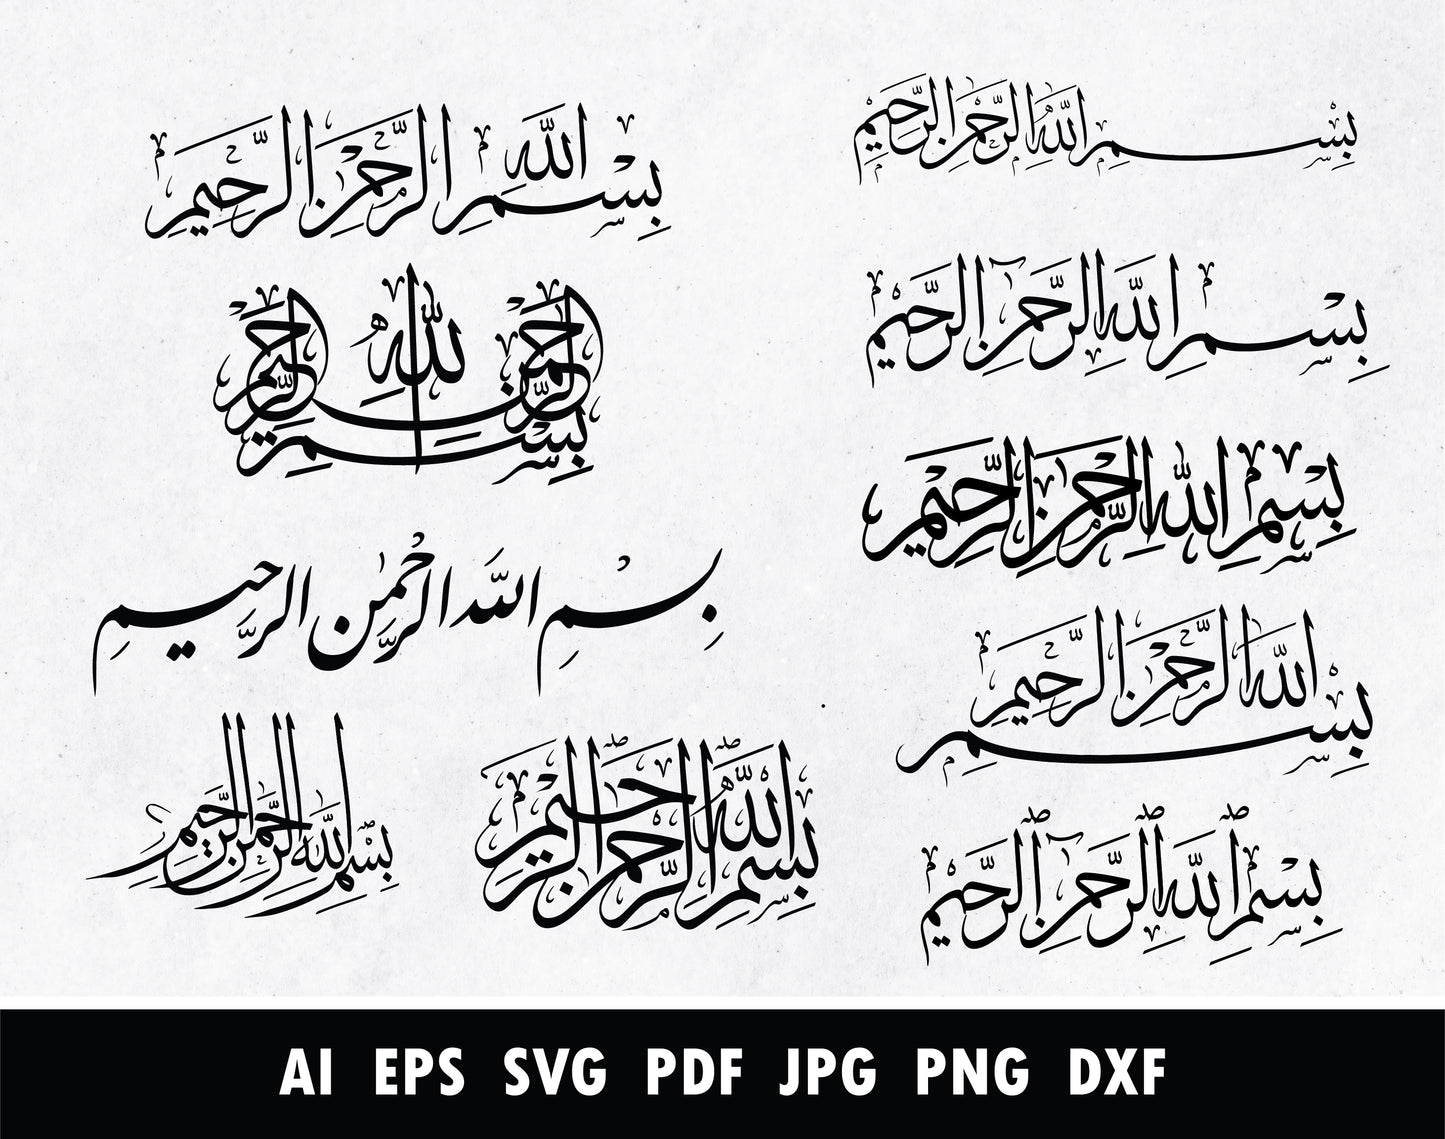 بسم الله الرحمن الرحيم
بسم الله الرحمن الرحيم
بسم الله الرحمن الرحيم
بسم الله الرحمن الرحيم
بسم الله الرحمن الرحيم
بسم الله الرحمن الرحيم
بسم الله الرحمن الرحيم
بسم الله الرحمن الرحيم
بسم الله الرحمن الرحيم
بسم الله الرحمن الرحيم
AI EPS SVG PDF JPG PNG DXF